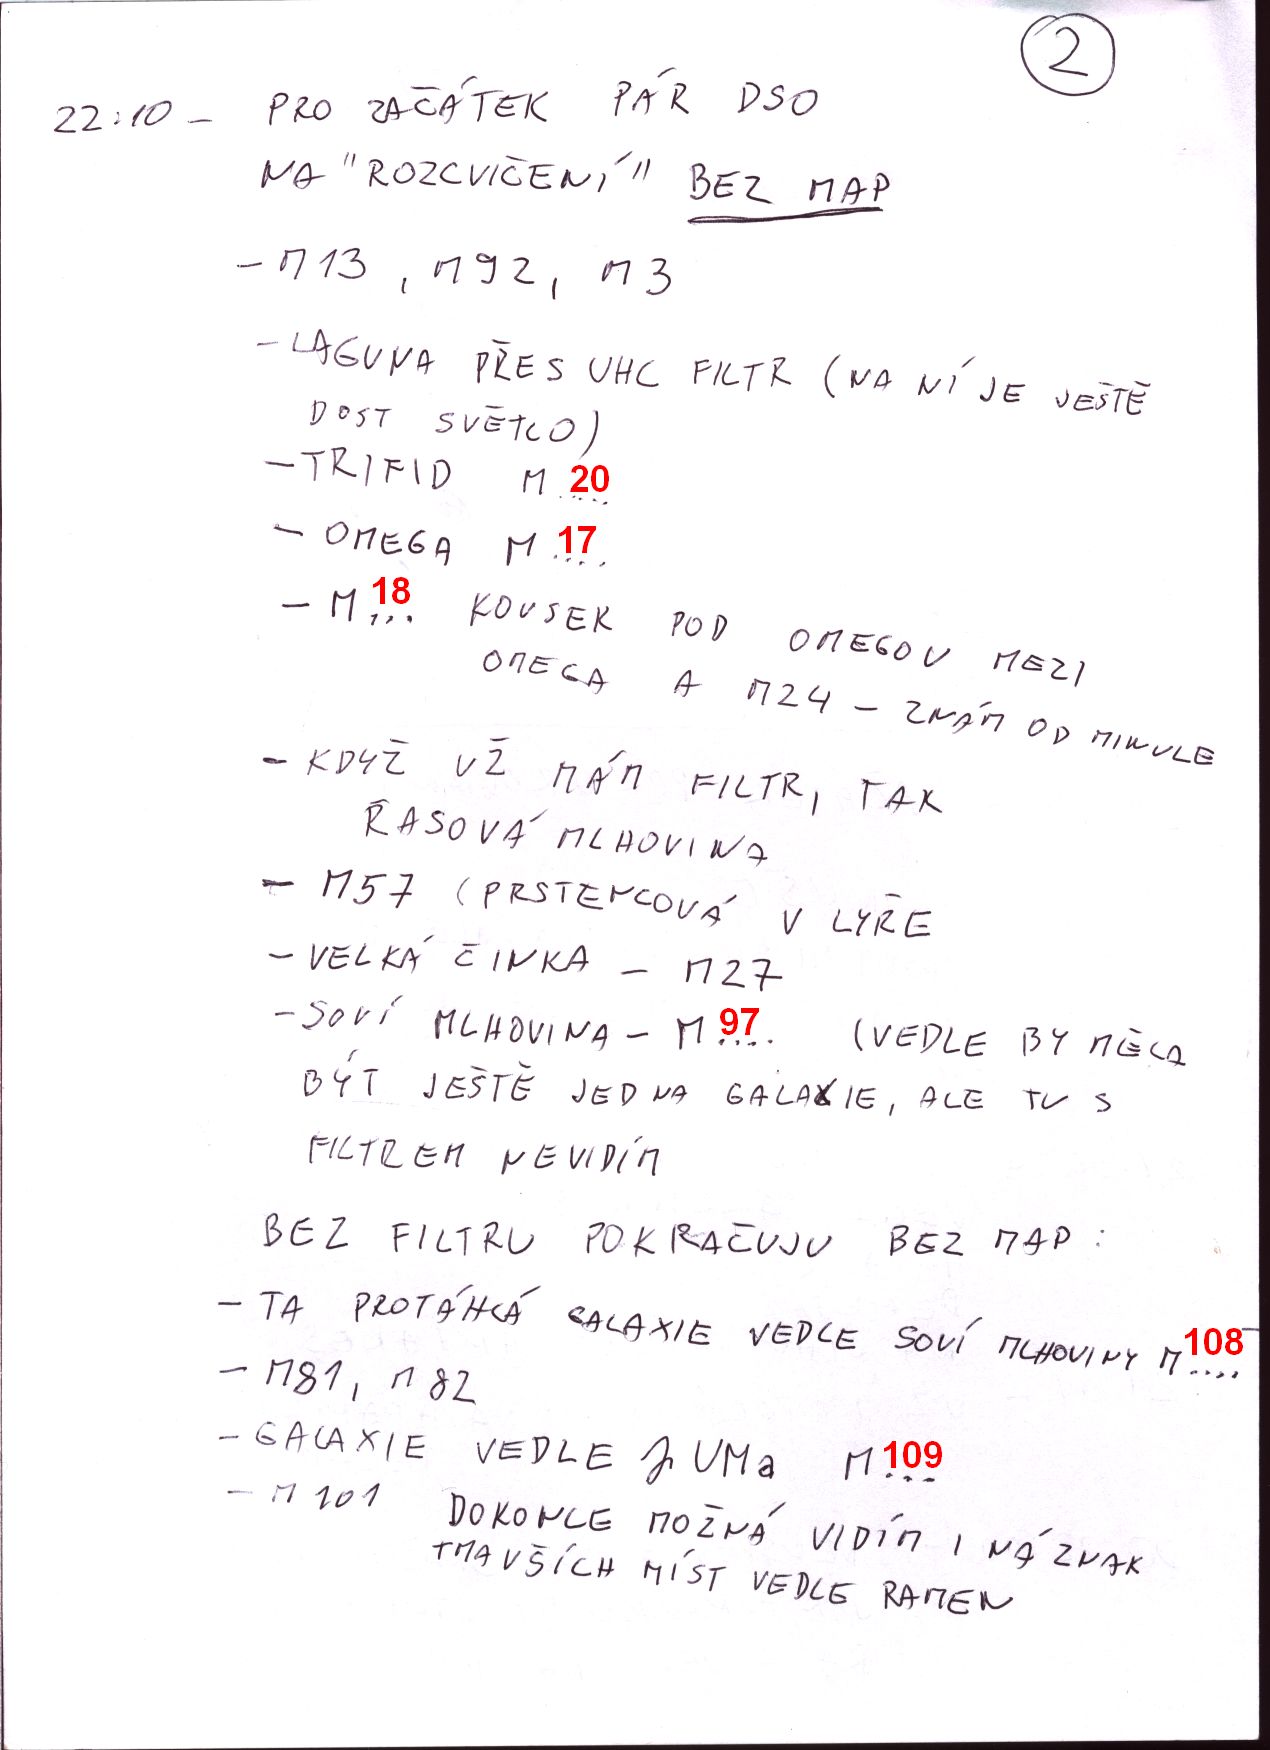 2
22:10 - PRO ZAČÁTEK PÁR DSO
NA "ROZCVIČENÍ" BEZ MAP
- M13, M92, M3
- LAGUNA PŘES UHC FILTR (NA NÍ JE JEŠTĚ
DOST SVĚTLO)
- TRIFID M 20
- OMEGA M 17
- M 18 KOUSEK POD OMEGOU MEZI
OMEGA A M24 - ZNÁM OD MINULE
- KDYŽ UŽ MÁM FILTR, TAK
ŘASOVÁ MLHOVINA
- M57 (PRSTENCOVÁ V LYŘE
- VELKÁ ČINKA - M27
- SOVÍ MLHOVINA - M 97 (VEDLE BY MĚLA
BÝT JEŠTĚ JEDNA GALAXIE, ALE TU S
FILTREM NEVIDÍM
BEZ FILTRU POKRAČUJU BEZ MAP:
- TA PROTÁHLÁ GALAXIE VEDLE SOVÍ MLHOVINY M 108
- M81, M82
- GALAXIE VEDLE γ UMa M 109
- M101 DOKONCE MOŽNÁ VIDÍM I NÁZNAK
TMAVŠÍCH MÍST VEDLE RAMEN